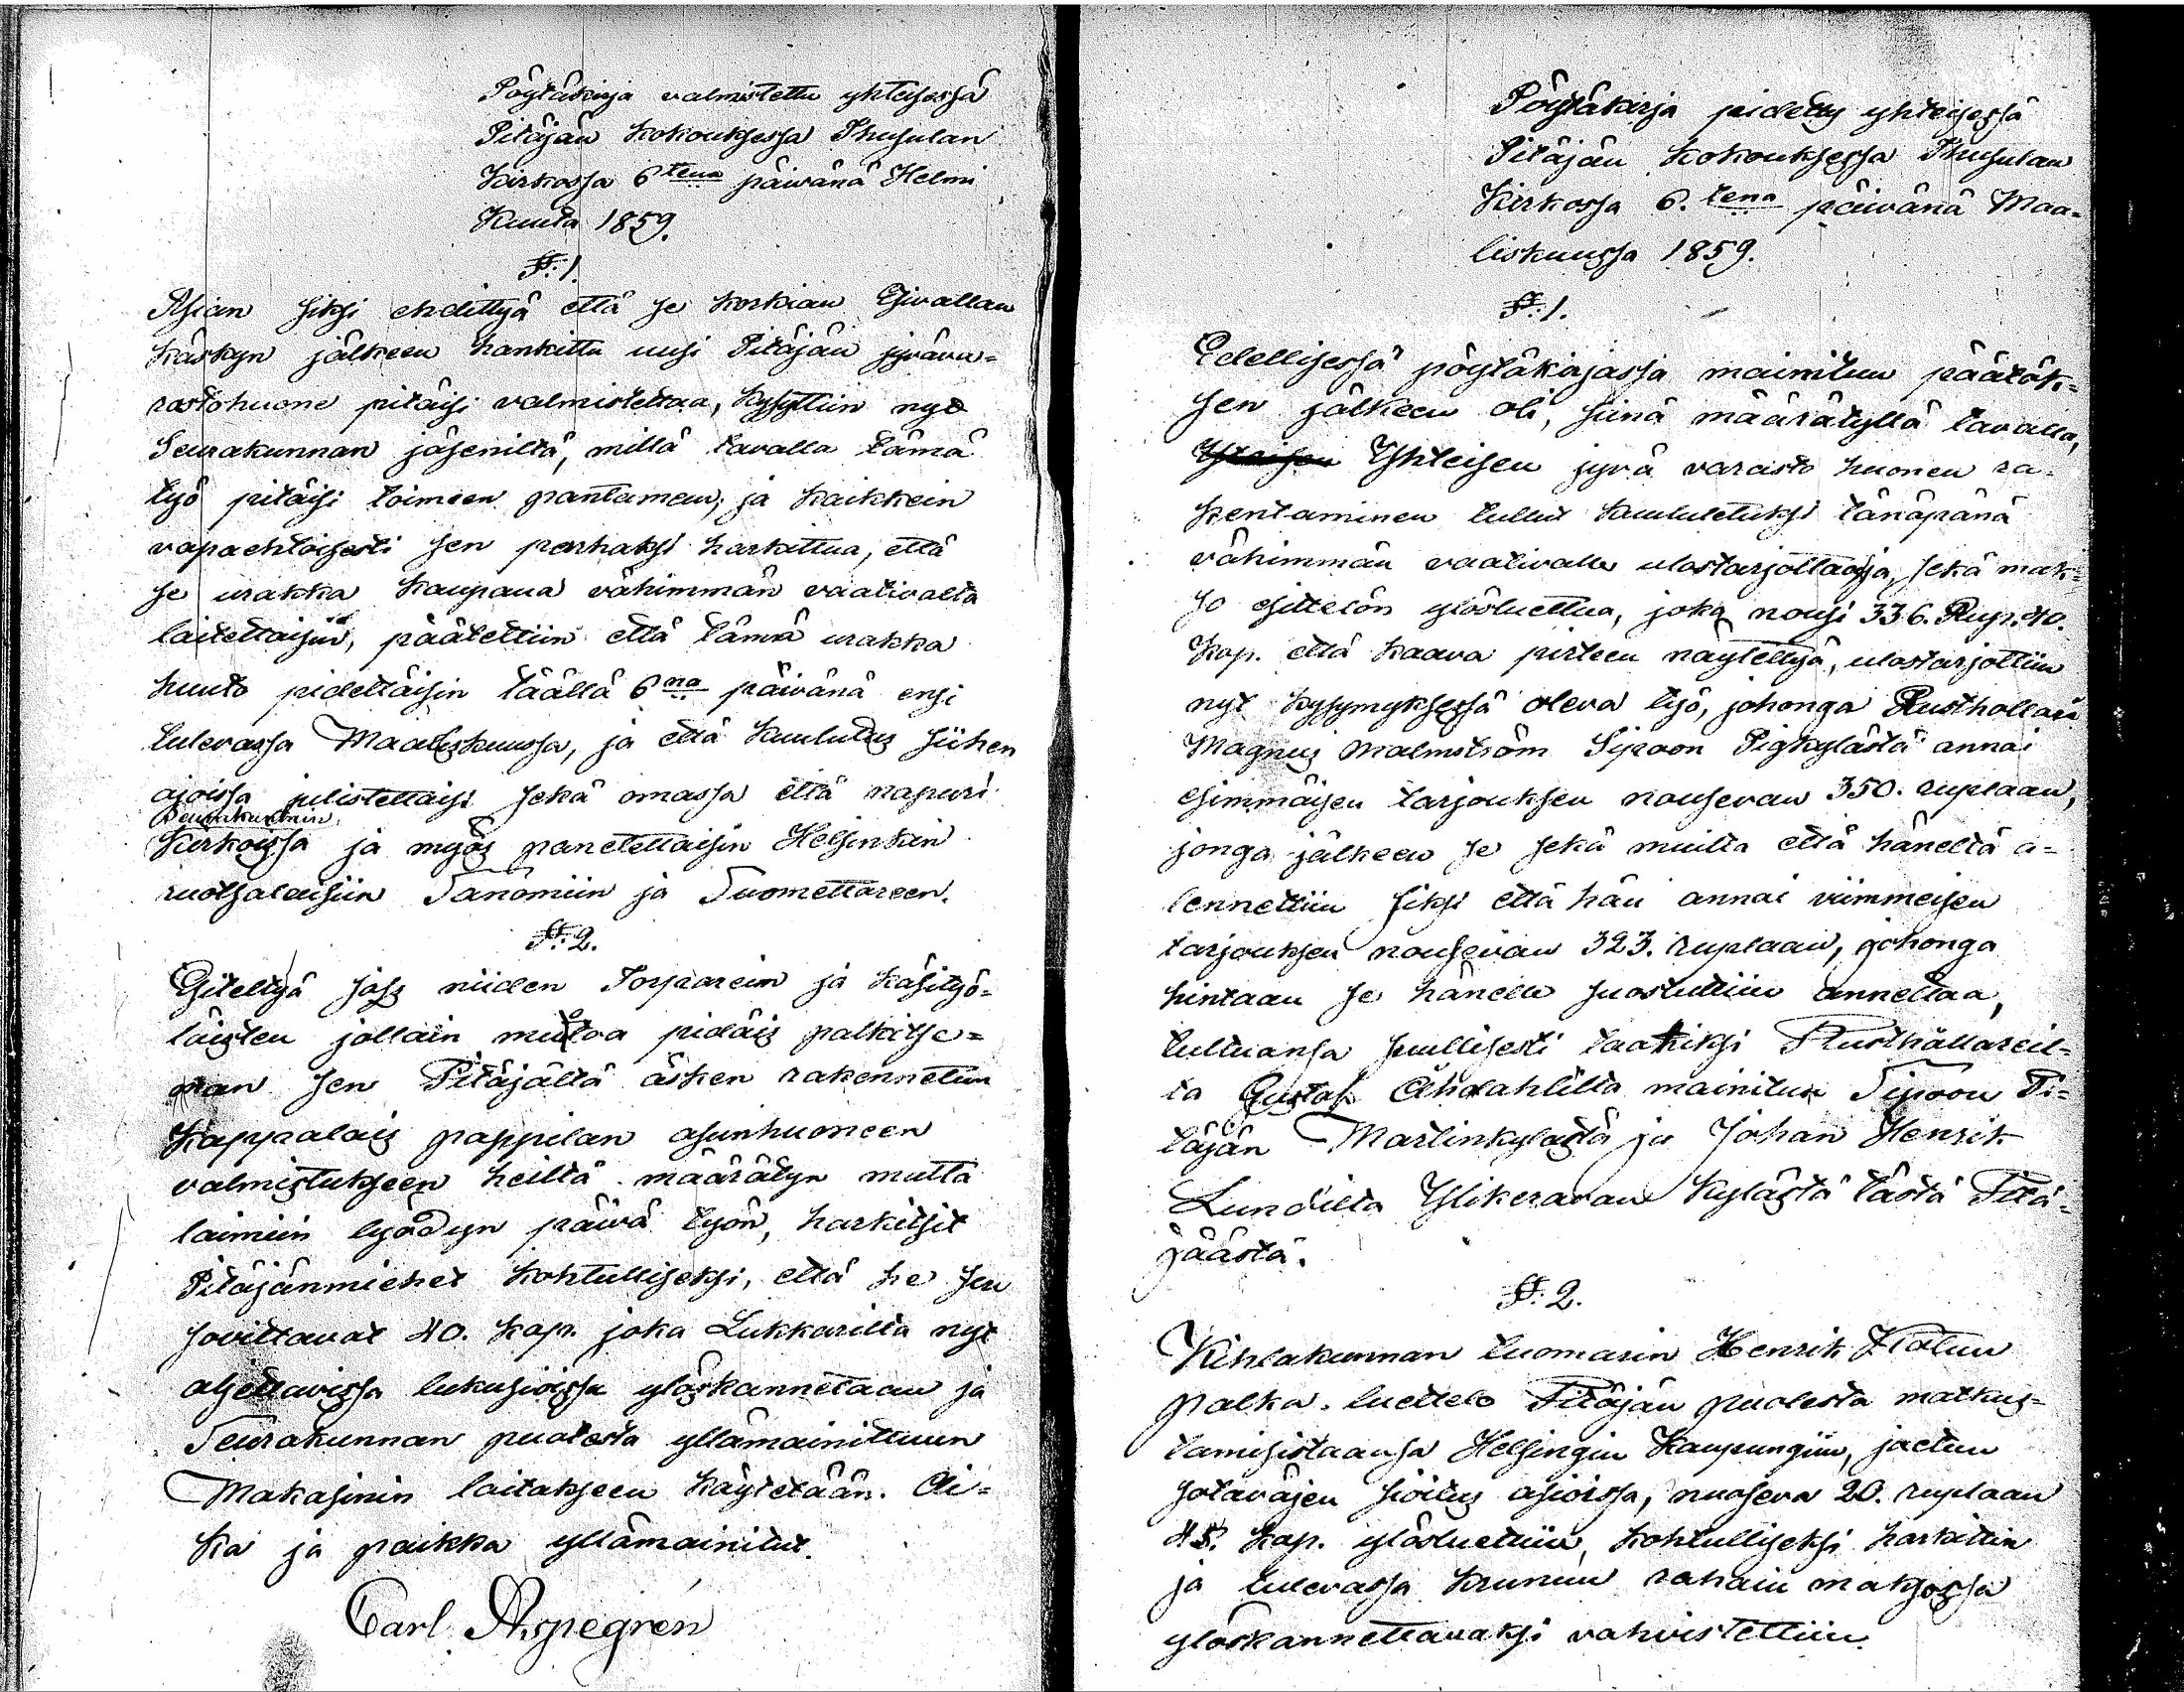 Pöytäkirja valmistettu yhteisessä
Pitäjän kokouksessa Thusulan
Kirkossa 6tena päivänä Helmi
Kuuta 1859.
§: 1.
Asian siksi ehdittyä että se korkian Esivallan
käskyn jälkeen hankittu uusi Pitäjän jyväva=
rastohuone pitäisi valmistettaa, kysyttiin nyt
Seurakunnan jäseniltä, millä tavalla tämä
työ pitäisi toimeen pantaman, ja kaikkein
vapaehtoisesti sen parhaksi harkittua, että
se urakka kaupana vähimmän vaativalta
laitettaisiin, päätettiin että tämä urakka
huuto pidettäisin täällä 6na päivänä ensi
tulevassa Maaliskuussa, ja että kuulutus siihen
ajoissa julistettaisi sekä omassa että napuri
Seurakunnin
Kirkoissa ja myös panetettaisin Helsinkin
ruotsalaisiin Sanomiin ja Suomettareen.
§: 2.
Esiteltyä joss niiden Torparein ja käsityö=
läisten jollain muotoa pidäis palkitse=
man sen Pitäjältä äsken rakennetun
Kappalais pappilan asunhuoneen
valmistukseen heiltä määrätyn mutta
laimiin lyödyn päivä työn, harkitsit
Pitäjänmiehet kohtulliseksi, että he sen
sovittavat 40. kop. joka Lukkarilta nyt
aljettavissa lukusioissa ylöskannetaan ja
Seurakunnan puolesta yllämainittuun
Makasinin laitakseen käytetään. Ai=
ka ja paikka yllämainitut.
Carl Aspegrén
Pöytäkirja pidetty yhteisessä
Pitäjän kokouksessa Thusulan
Kirkossa 6.tena päivänä Maa=
liskuussa 1859.
§: 1.
Edellisessä pöytäkirjassa mainitun päätök=
sen jälkeen oli, siinä määrätyllä tavalla,
Yhteisen jyvä varasto huonen ra=
kentaminen tullut kuulutetuksi tänäpänä
vähimmän vaativalle ulostarjottaassa, sekä mak=
so esittelön ylösluettua, joka nousi 336. Rup. 40.
Kop. että kaava pirteen näytettyä, ulostarjottiin
nyt kysymyksessä oleva työ, johonga Rusthollari
Magnus Malmström Sipoon Pigkylästä annai
esimmäisen tarjouksen nousevan 350. ruplaan,
jonga jälkeen se sekä muilta että häneltä a=
lennettiin siksi että hän annai viimmeisen
tarjouksen nousevan 323. ruplaan, johonga
hintaan se hänelle suostuttiin annettaa,
tultuansa suullisesti taatiksi Rusthållareil=
ta Gustaf Ahldahlilta mainitun Sipoon Pi=
täjän Martinkylästä ja Johan Henrik
Lundilta Ylikeravan Kylästä tästä Pitä=
jäästä.
§: 2.
Kihlakunnan tuomarin Henrik
palka luettelo Pitäjän puolesta matkus=
tamisistaansa Helsingin Kaupungiin, jaetun
sotaväjen sioitus asioissa, nuoseva 20. ruplaan
45. kop. ylösluettiin, kohtulliseksi harkittiin
ja tulevassa krunun rahain maksossa
ylöskannettavaksi vahvistettiin.